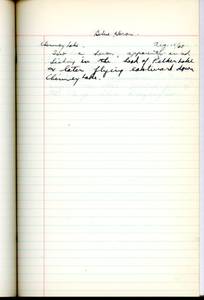 Blue Heron.
Chimney Lake. Aug.
Saw a heron, apparently
fishing in the head of Lake
or later flying eastward down
Chimney Lake.